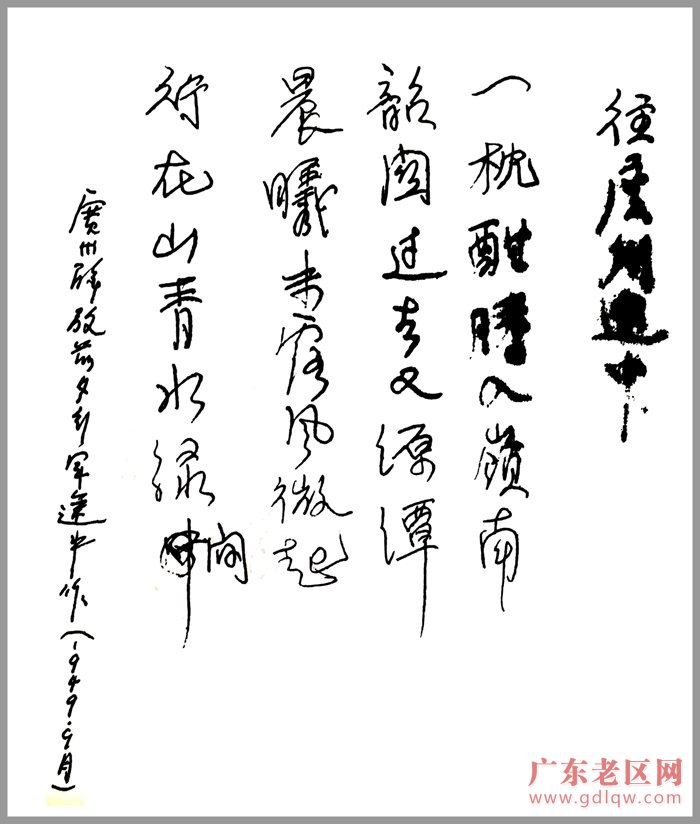 往廣州途中
一枕酣睡入嶺南
韶関过去又源潭
晨曦未露风微起
行在山青水绿间
廣州解放前夕行军途中作(1949.9月)
广东老区网
www.gdlqw.com